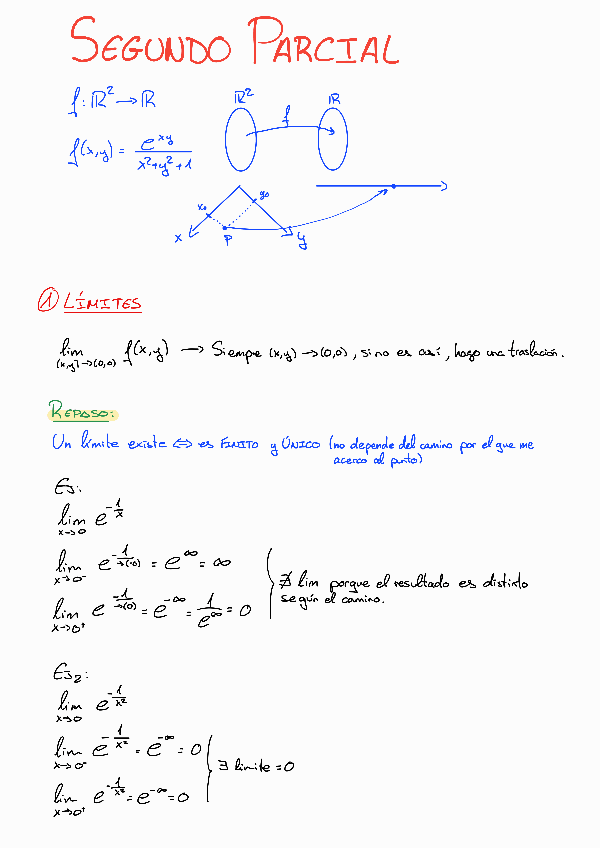 SEGUNDO PARCIAL
f: ℝ² → ℝ
ℝ² f ℝ
f(x,y) = e^xy / x²+y²+1
x₀ y₀
x P y
① LÍMITES
lim (x,y)→(0,0) f(x,y) → Siempre (x,y)→(0,0), si no es así, hago una traslación.
REPASO:
Un límite existe ⇔ es FINITO y ÚNICO (no depende del camino por el que me
acerco al punto)
EJ:
lim x→0 e^(-1/x)
lim x→0⁻ e^(-1/→(-0)) = e^∞ = ∞
∄ lim porque el resultado es distinto
según el camino.
lim x→0⁺ e^(-1/→(0)) = e^-∞ = 1/e^∞ = 0
EJ₂:
lim x→0 e^(-1/x²)
lim x→0⁻ e^(-1/x²) = e^-∞ = 0
∃ límite = 0
lim x→0⁺ e^(-1/x²) = e^-∞ = 0